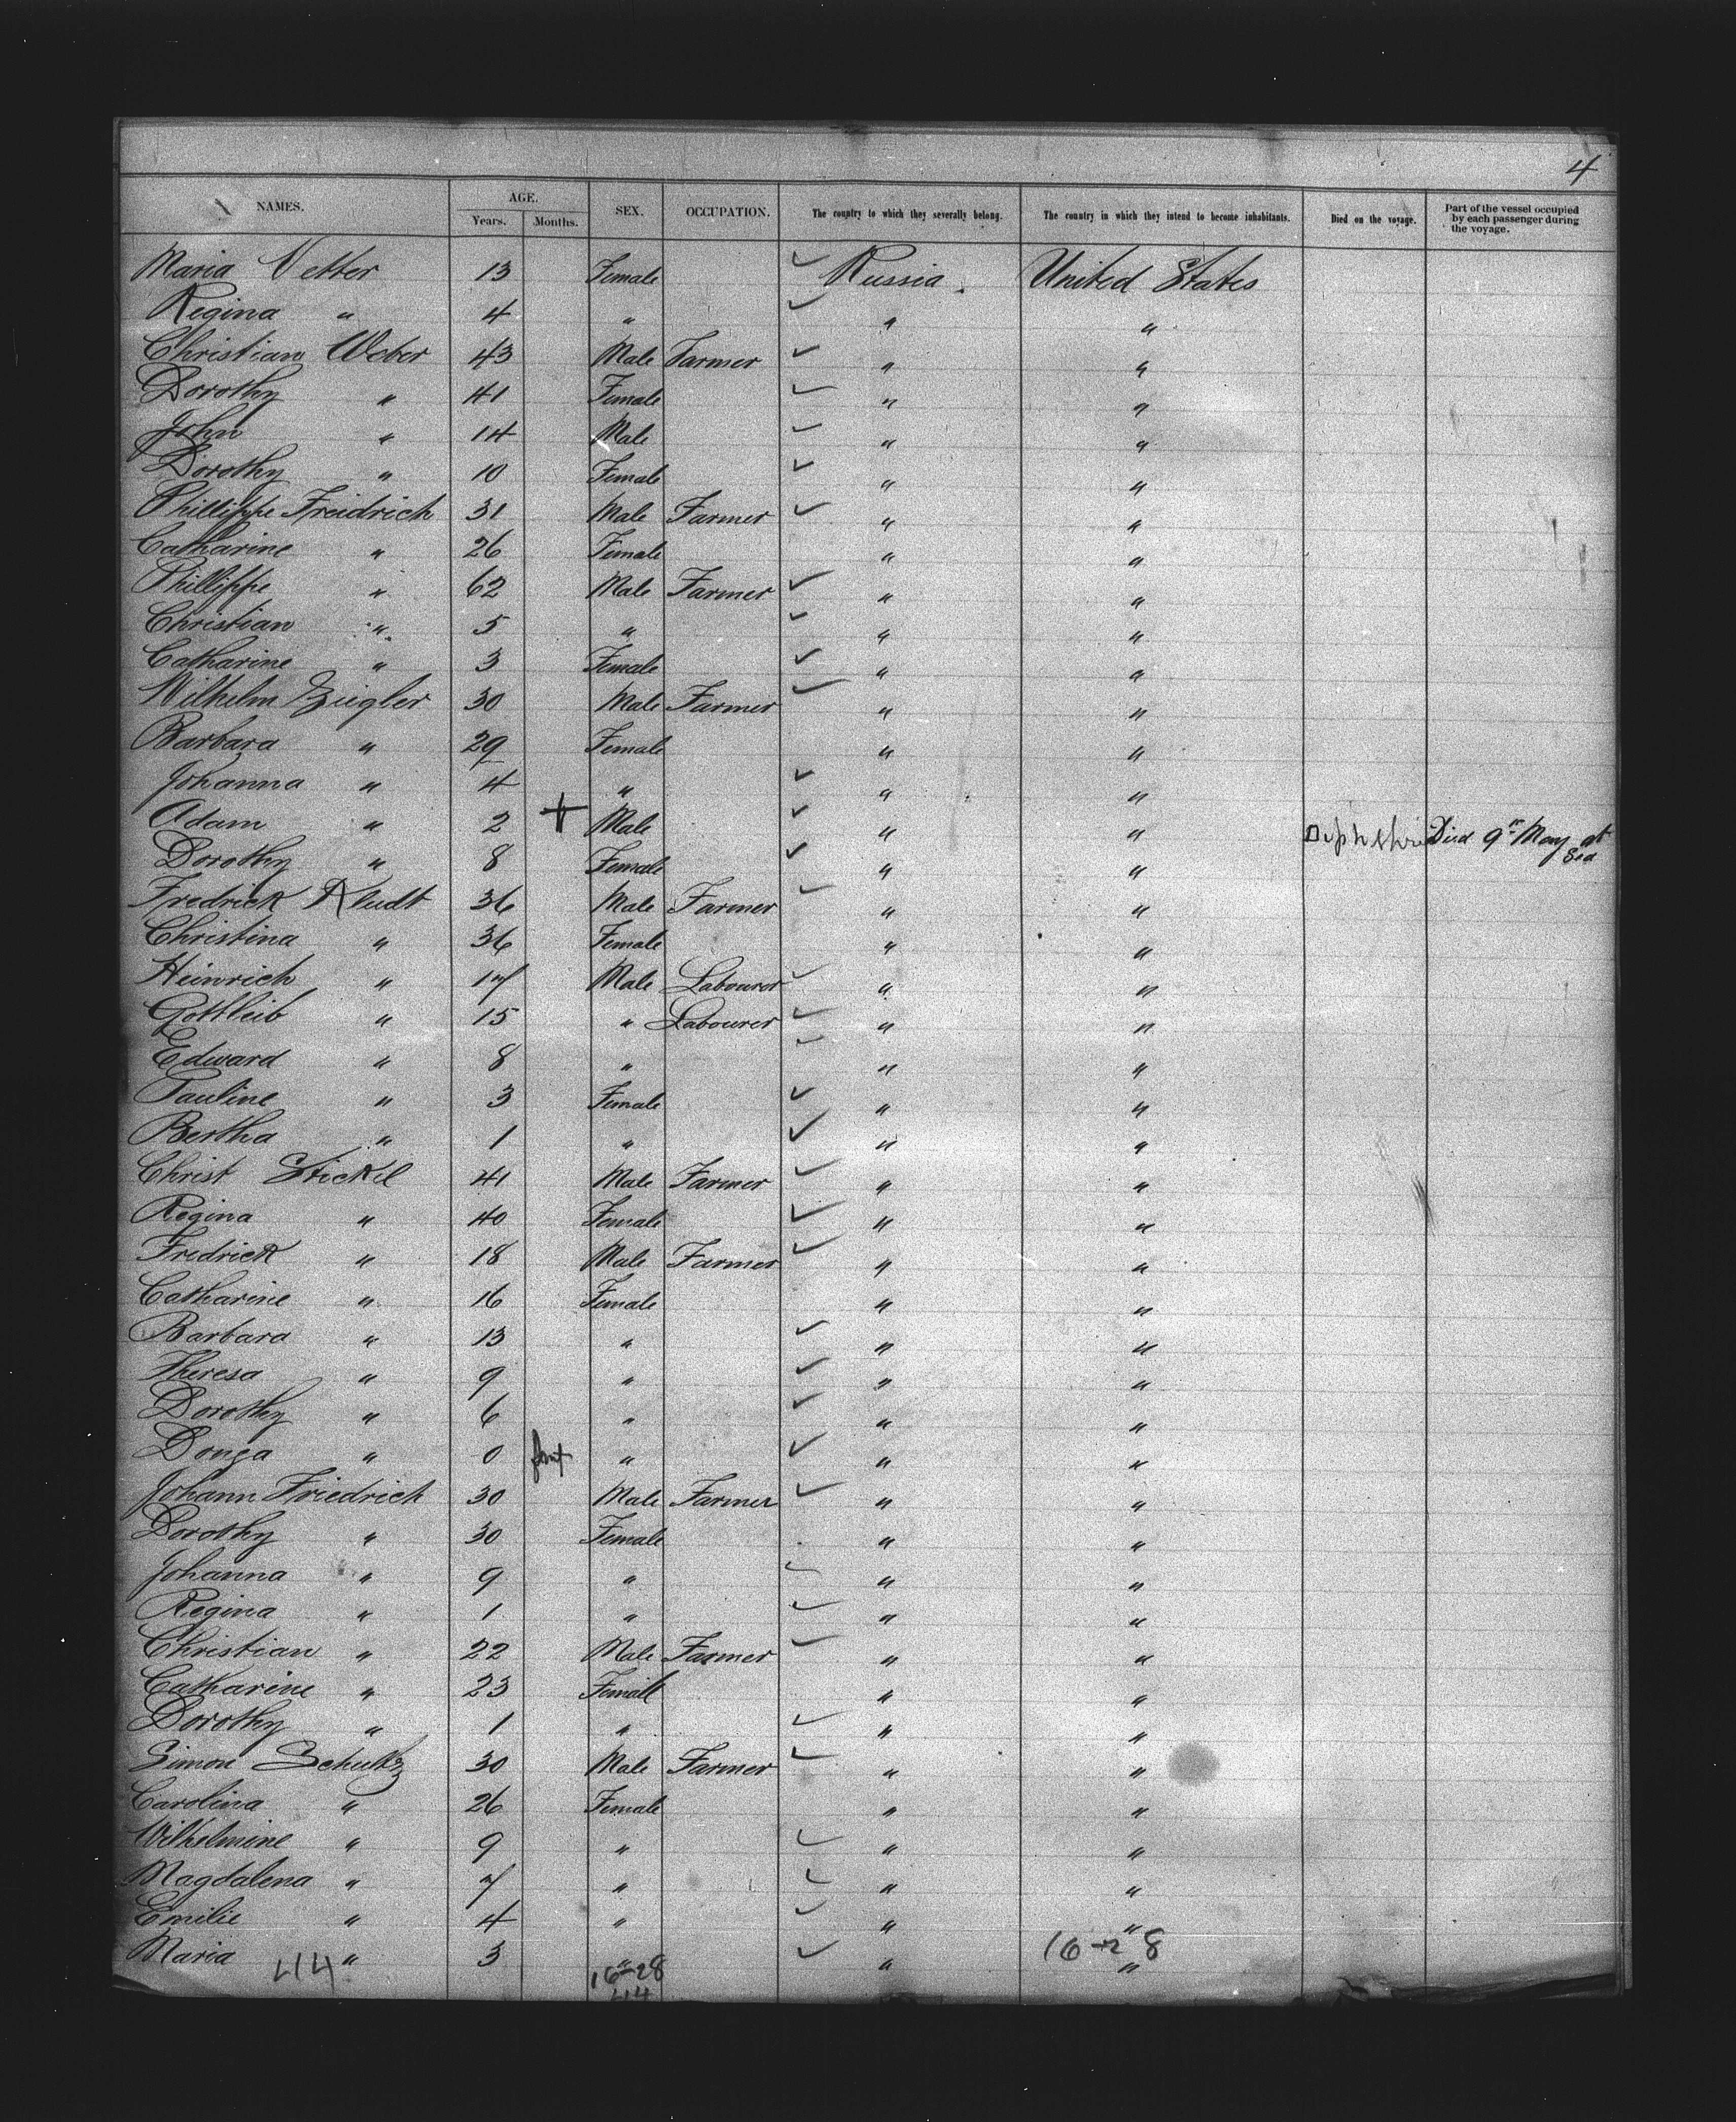 4
NAMES. AGE. Years. Months. SEX. OCCUPATION. The country to which they severally belong. The country in which they intend to become inhabitants. Died on the voyage. Part of the vessel occupied by each passenger during the voyage.
Maria Vetter 13 Female Russia. United States
Regina " 4 " " "
Christian Weber 43 Male Farmer " "
Dorothy " 41 Female " "
John " 14 Male " "
Dorothy " 10 Female " "
Phillippe Freidrich 31 Male Farmer " "
Catharine " 26 Female " "
Phillippe " 62 Male Farmer " "
Christian " 5 " " "
Catharine " 3 Female " "
Wilhelm Ziegler 30 Male Farmer " "
Barbara " 29 Female " "
Johanna " 4 " " "
Adam " 2 + Male " " Died 9th May at Sea
Dorothy " 8 Female " "
Fredrick Kludt 36 Male Farmer " "
Christina " 36 Female " "
Heinrich " 17 Male Labourer " "
Gottleib " 15 " Labourer " "
Edward " 8 " " "
Pauline " 3 Female " "
Bertha " 1 " " "
Christ Stickel 41 Male Farmer " "
Regina " 40 Female " "
Fredrick " 18 Male Farmer " "
Catharine " 16 Female " "
Barbara " 13 " " "
Theresa " 9 " " "
Dorothy " 6 " " "
" 0 " " "
Johann Friedrich 30 Male Farmer " "
Dorothy " 30 Female " "
Johanna " 9 " " "
Regina " 1 " " "
Christian " 22 Male Farmer " "
Catharine " 23 Female " "
Dorothy " 1 " " "
Simon Schultz 30 Male Farmer " "
Carolina " 26 Female " "
Wilhelmine " 9 " " "
Magdalena " 7 " " "
Emilie " 4 " " "
Maria " 3 " " "
44 16-28 16-28
44